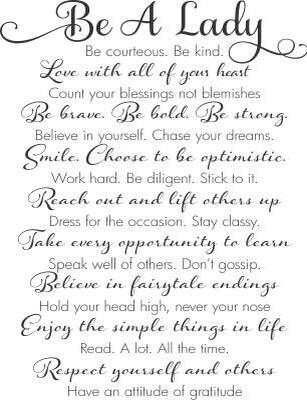 Be A Lady
Be courteous. Be kind.
Love with all of your heart
Count your blessings not blemishes
Be brave. Be bold. Be strong.
Believe in yourself. Chase your dreams.
Smile. Choose to be optimistic.
Work hard. Be diligent. Stick to it.
Reach out and lift others up
Dress for the occasion. Stay classy.
Take every opportunity to learn
Speak well of others. Don't gossip.
Believe in fairytale endings
Hold your head high, never your nose
Enjoy the simple things in life
Read. A lot. All the time.
Respect yourself and others
Have an attitude of gratitude